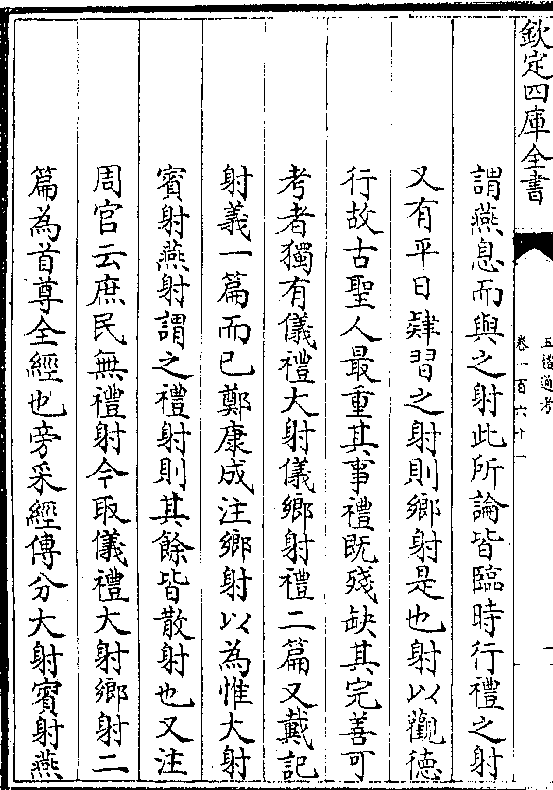 欽定四庫全書
五禮通考
卷一百六十一
謂燕息而與之射此所論皆臨時行禮之射
又有平日肄習之射則鄉射是也射以觀德
行故古聖人最重其事禮既殘缺其完善可
考者獨有儀禮大射儀鄉射禮二篇又戴記
射義一篇而已鄭康成注鄉射以為惟大射
賓射燕射謂之禮射則其餘皆散射也又注
周官云庶民無禮射今取儀禮大射鄉射二
篇為首尊全經也旁采經傳分大射賓射燕